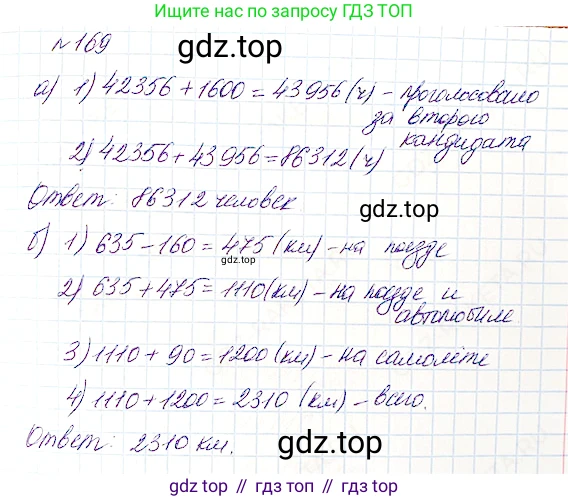 Ищите нас по запросу ГДЗ ТОП
№169
gdz.top
а) 1) 42356 + 1600 = 43956 (ч) - проголосовало
за второго
кандидата
2) 42356 + 43956 = 86312 (ч)
Ответ: 86312 человек
gdz.top
б) 1) 635 - 160 = 475 (км) - на поезде
gdz.top
2) 635 + 475 = 1110 (км) - на поезде и
автомобиле
3) 1110 + 90 = 1200 (км) - на самолёте
4) 1110 + 1200 = 2310 (км) - всего.
Ответ: 2310 км.
gdz.top
gdz top // гдз топ // gdz.top